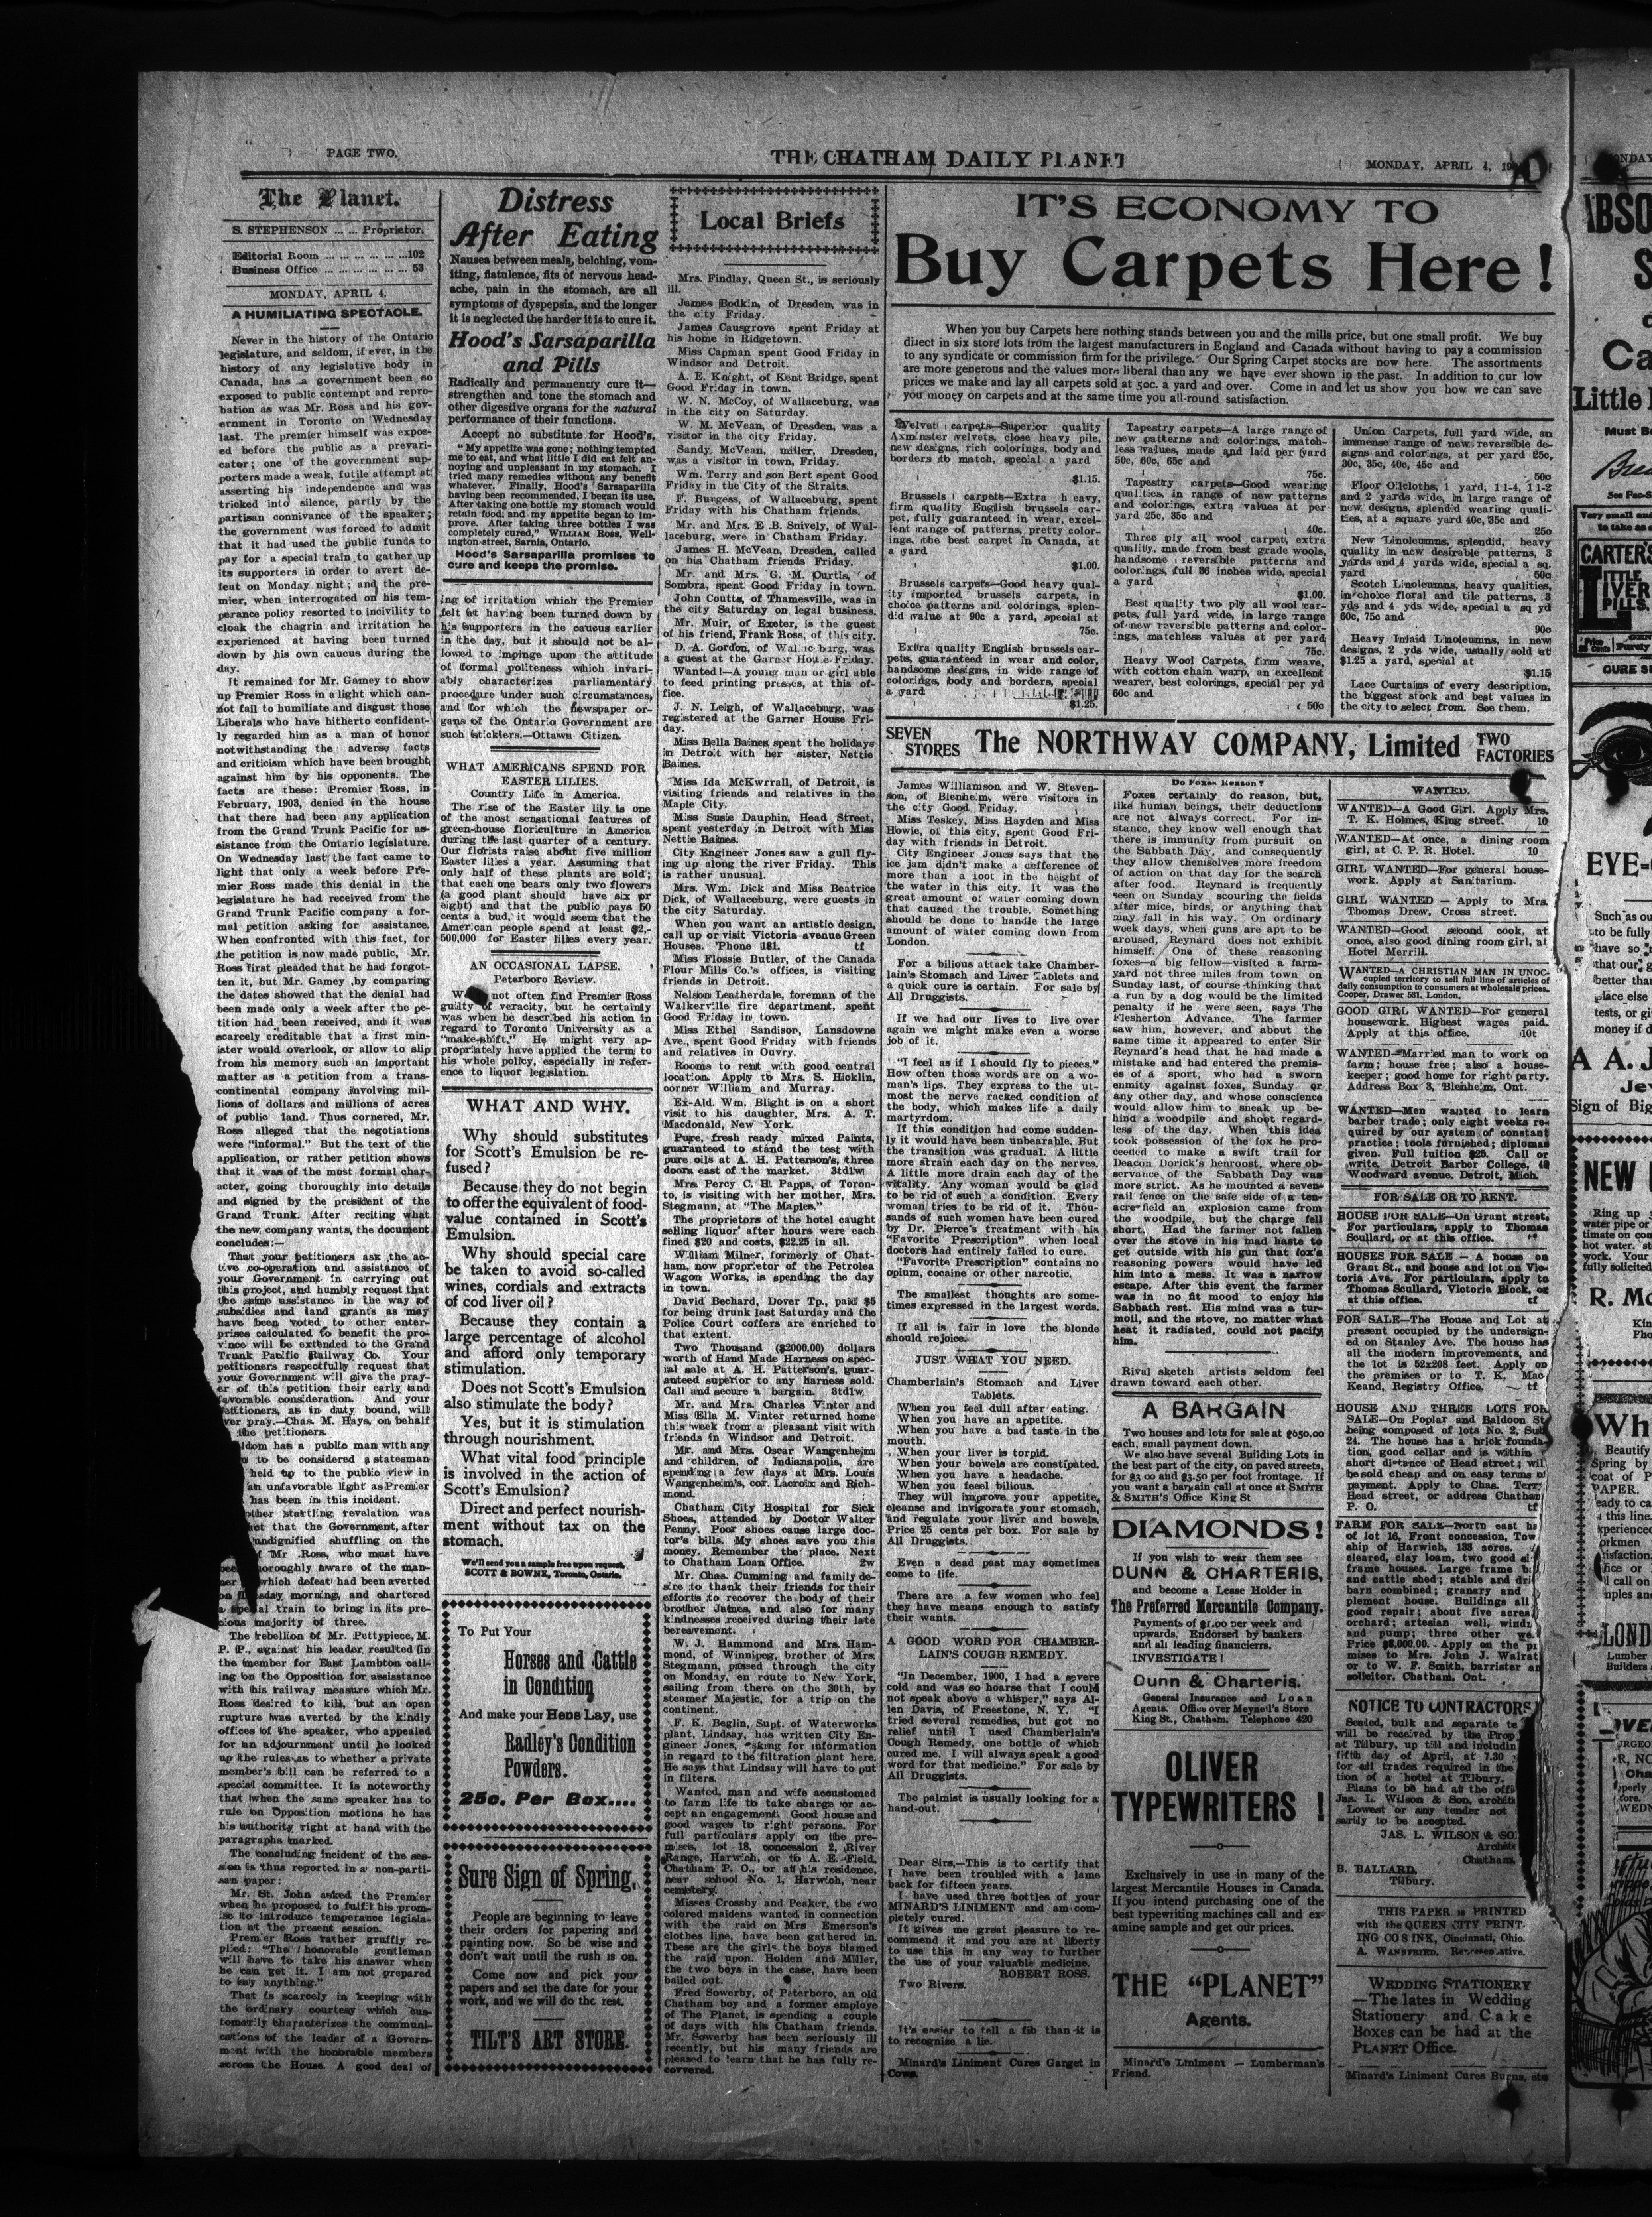 PAGE TWO.
THE CHATHAM DAILY PLANET
MONDAY, APRIL 4,
The Planet.
S. STEPHENSON ... ... Proprietor.
Editorial Room ... ... ... ... ...102
Business Office ... ... ... ... ... 53
MONDAY, APRIL 4.
A HUMILIATING SPECTACLE.
Never in the history of the Ontario
legislature, and seldom, if ever, in the
history of any legislative body in
Canada, has a government been so
exposed to public contempt and repro-
bation as was Mr. Ross and his gov-
ernment in Toronto on Wednesday
last. The premier himself was expos-
ed before the public as a prevari-
cator; one of the government sup-
porters made a weak, futile attempt at
asserting his independence and was
tricked into silence, partly by the
partisan connivance of the speaker;
the government was forced to admit
that it had used the public funds to
pay for a special train to gather up
its supporters in order to avert de-
feat on Monday night; and the pre-
mier, when interrogated on his tem-
perance policy resorted to incivility to
cloak the chagrin and irritation he
experienced at having been turned
down by his own caucus during the
day.
It remained for Mr. Gamey to show
up Premier Ross in a light which can-
not fail to humiliate and disgust those
Liberals who have hitherto confident-
ly regarded him as a man of honor
notwithstanding the adverse facts
and criticism which have been brought
against him by his opponents. The
facts are these: Premier Ross, in
February, 1903, denied in the house
that there had been any application
from the Grand Trunk Pacific for as-
sistance from the Ontario legislature.
On Wednesday last the fact came to
light that only a week before Pre-
mier Ross made this denial in the
legislature he had received from the
Grand Trunk Pacific company a for-
mal petition asking for assistance.
When confronted with this fact, for
the petition is now made public, Mr.
Ross first pleaded that he had forgot-
ten it, but Mr. Gamey ,by comparing
the dates showed that the denial had
been made only a week after the pe-
tition had been received, and it was
scarcely creditable that a first min-
ister would overlook, or allow to slip
from his memory such an important
matter as a petition from a trans-
continental company involving mil-
lions of dollars and millions of acres
of public land. Thus cornered, Mr.
Ross alleged that the negotiations
were "informal." But the text of the
application, or rather petition shows
that it was of the most formal char-
acter, going thoroughly into details
and signed by the president of the
Grand Trunk. After reciting what
the new company wants, the document
concludes:—
That your petitioners ask the ac-
tive co-operation and assistance of
your Government in carrying out
this project, and humbly request that
the same assistance in the way of
subsidies and land grants as may
have been voted to other enter-
prises calculated to benefit the pro-
vince will be extended to the Grand
Trunk Pacific Railway Co. Your
petitioners respectfully request that
your Government will give the pray-
er of this petition their early and
favorable consideration. And your
petitioners, as in duty bound, will
ever pray.—Chas. M. Hays, on behalf
the petitioners.
has a public man with any
to be considered a statesman
held up to the public view in
an unfavorable light as Premier
has been in this incident.
other startling revelation was
that the Government, after
undignified shuffling on the
Mr. Ross, who must have
been thoroughly aware of the man-
ner which defeat had been averted
on morning, and chartered
a special train to bring in its pre-
cious majority of three.
The rebellion of Mr. Pettypiece, M.
P. P., against his leader resulted in
the member for East Lambton call-
ing on the Opposition for assistance
with his railway measure which Mr.
Ross desired to kill, but an open
rupture was averted by the kindly
offices of the speaker, who appealed
for an adjournment until he looked
up the rules as to whether a private
member's bill can be referred to a
special committee. It is noteworthy
that when the same speaker has to
rule on Opposition motions he has
his authority right at hand with the
paragraphs marked.
The concluding incident of the ses-
sion is thus reported in a non-parti-
san paper:
Mr. St. John asked the Premier
when he proposed to fulfil his prom-
ise to introduce temperance legisla-
tion at the present session.
Premier Ross rather gruffly re-
plied: "The honorable gentleman
will have to take his answer when
he can get it. I am not prepared
to say anything."
That is scarcely in keeping with
the ordinary courtesy which cus-
tomarily characterizes the communi-
cations of the leader of a Govern-
ment with the honorable members
across the House. A good deal of
Distress
After Eating
Nausea between meals, belching, vom-
iting, flatulence, fits of nervous head-
ache, pain in the stomach, are all
symptoms of dyspepsia, and the longer
it is neglected the harder it is to cure it.
Hood's Sarsaparilla
and Pills
Radically and permanently cure it—
strengthen and tone the stomach and
other digestive organs for the natural
performance of their functions.
Accept no substitute for Hood's.
"My appetite was gone; nothing tempted
me to eat, and what little I did eat felt an-
noying and unpleasant in my stomach. I
tried many remedies without any benefit
whatever. Finally, Hood's Sarsaparilla
having been recommended, I began its use.
After taking one bottle my stomach would
retain food, and my appetite began to im-
prove. After taking three bottles I was
completely cured," WILLIAM ROSS, Well-
ington-street, Sarnia, Ontario.
Hood's Sarsaparilla promises to
cure and keeps the promise.
ing of irritation which the Premier
felt at having been turned down by
his supporters in the caucus earlier
in the day, but it should not be al-
lowed to impinge upon the attitude
of formal politeness which invari-
ably characterizes parliamentary
procedure under such circumstances,
and for which the newspaper or-
gans of the Ontario Government are
such sticklers.—Ottawa Citizen.
WHAT AMERICANS SPEND FOR
EASTER LILIES.
Country Life in America.
The rise of the Easter lily is one
of the most sensational features of
green-house floriculture in America
during the last quarter of a century.
Our florists raise about five million
Easter lilies a year. Assuming that
only half of these plants are sold;
that each one bears only two flowers
(a good plant should have six or
eight) and that the public pays 50
cents a bud, it would seem that the
American people spend at least $2,-
500,000 for Easter lilies every year.
AN OCCASIONAL LAPSE.
Peterboro Review.
not often find Premier Ross
guilty of veracity, but he certainly
was when he described his action in
regard to Toronto University as a
"make-shift." He might very ap-
propriately have applied the term to
his whole policy, especially in refer-
ence to liquor legislation.
WHAT AND WHY.
Why should substitutes
for Scott's Emulsion be re-
fused?
Because they do not begin
to offer the equivalent of food-
value contained in Scott's
Emulsion.
Why should special care
be taken to avoid so-called
wines, cordials and extracts
of cod liver oil?
Because they contain a
large percentage of alcohol
and afford only temporary
stimulation.
Does not Scott's Emulsion
also stimulate the body?
Yes, but it is stimulation
through nourishment.
What vital food principle
is involved in the action of
Scott's Emulsion?
Direct and perfect nourish-
ment without tax on the
stomach.
We'll send you a sample free upon request.
SCOTT & BOWNE, Toronto, Ontario.
To Put Your
Horses and Cattle
in Condition
And make your Hens Lay, use
Radley's Condition
Powders.
25c. Per Box....
Sure Sign of Spring.
People are beginning to leave
their orders for papering and
painting now. So be wise and
don't wait until the rush is on.
Come now and pick your
papers and set the date for your
work, and we will do the rest.
TILT'S ART STORE.
Local Briefs
Mrs. Findlay, Queen St., is seriously
ill.
James Bodkin, of Dresden, was in
the city Friday.
James Causgrove spent Friday at
his home in Ridgetown.
Miss Capman spent Good Friday in
Windsor and Detroit.
A. E. Knight, of Kent Bridge, spent
Good Friday in town.
W. N. McCoy, of Wallaceburg, was
in the city on Saturday.
W. M. McVean, of Dresden, was a
visitor in the city Friday.
Sandy McVean, miller, Dresden,
was a visitor in town, Friday.
Wm. Terry and son Bert spent Good
Friday in the City of the Straits.
F. Burgess, of Wallaceburg, spent
Friday with his Chatham friends.
Mr. and Mrs. E .B. Snively, of Wal-
laceburg, were in Chatham Friday.
James H. McVean, Dresden, called
on his Chatham friends Friday.
Mr. and Mrs. G. M. Curtis, of
Sombra, spent Good Friday in town.
John Coutts, of Thamesville, was in
the city Saturday on legal business.
Mr. Muir, of Exeter, is the guest
of his friend, Frank Ross, of this city.
D. A. Gordon, of Wallaceburg, was
a guest at the Garner House Friday.
Wanted!—A young man or girl able
to feed printing presses, at this of-
fice.
J. N. Leigh, of Wallaceburg, was
registered at the Garner House Fri-
day.
Miss Bella Baines spent the holidays
in Detroit with her sister, Nettie
Baines.
Miss Ida McKwrrall, of Detroit, is
visiting friends and relatives in the
Maple City.
Miss Susie Dauphin, Head Street,
spent yesterday in Detroit with Miss
Nettie Baines.
City Engineer Jones saw a gull fly-
ing up along the river Friday. This
is rather unusual.
Mrs. Wm. Dick and Miss Beatrice
Dick, of Wallaceburg, were guests in
the city Saturday.
When you want an artistic design,
call up or visit Victoria avenue Green
Houses. 'Phone 181. tf
Miss Flossie Butler, of the Canada
Flour Mills Co.'s offices, is visiting
friends in Detroit.
Nelson Leatherdale, foreman of the
Walkerville fire department, spent
Good Friday in town.
Miss Ethel Sandison, Lansdowne
Ave., spent Good Friday with friends
and relatives in Ouvry.
Rooms to rent with good central
location. Apply to Mrs. S. Hicklin,
corner William and Murray.
Ex-Ald. Wm. Blight is on a short
visit to his daughter, Mrs. A. T.
Macdonald, New York.
Pure, fresh ready mixed Paints,
guaranteed to stand the test with
pure oils at A. H. Patterson's, three
doors east of the market. 3td1w
Mrs. Percy C. H. Papps, of Toron-
to, is visiting with her mother, Mrs.
Stegmann, at "The Maples."
The proprietors of the hotel caught
selling liquor after hours were each
fined $20 and costs, $22.25 in all.
William Milner, formerly of Chat-
ham, now proprietor of the Petrolea
Wagon Works, is spending the day
in town.
David Bechard, Dover Tp., paid $5
for being drunk last Saturday and the
Police Court coffers are enriched to
that extent.
Two Thousand ($2000.00) dollars
worth of Hand Made Harness on spec-
ial sale at A. H. Patterson's, guar-
anteed superior to any harness sold.
Call and secure a bargain. 3td1w.
Mr. and Mrs. Charles Vinter and
Miss Ella M. Vinter returned home
this week from a pleasant visit with
friends in Windsor and Detroit.
Mr. and Mrs. Oscar Wangenheim
and children, of Indianapolis, are
spending a few days at Mrs. Louis
Wangenheim's, cor. Lacroix and Rich-
mond.
Chatham City Hospital for Sick
Shoes, attended by Doctor Walter
Penny. Poor shoes cause large doc-
tor's bills. My shoes save you this
money. Remember the place. Next
to Chatham Loan Office. 2w
Mr. Chas. Cumming and family de-
sire to thank their friends for their
efforts to recover the body of their
brother James, and also for many
kindnesses received during their late
bereavement.
W. J. Hammond and Mrs. Ham-
mond, of Winnipeg, brother of Mrs.
Stegmann, passed through the city
on Monday, en route to New York,
sailing from there on the 30th, by
steamer Majestic, for a trip on the
continent.
F. K. Beglin, Supt. of Waterworks
plant, Lindsay, has written City En-
gineer Jones, asking for information
in regard to the filtration plant here.
He says that Lindsay will have to put
in filters.
Wanted, man and wife accustomed
to farm life to take charge or ac-
cept an engagement. Good house and
good wages to right persons. For
full particulars apply on the pre-
mises, lot 18, concession 2, River
Range, Harwich, or to A. E. Field,
Chatham P. O., or at his residence,
near school No. 1, Harwich, near
cemetery.
Misses Crossby and Peaker, the two
colored maidens wanted in connection
with the raid on Mrs Emerson's
clothes line, have been gathered in.
These are the girls the boys blamed
the raid upon. Holden and Miller,
the two boys in the case, have been
bailed out.
Fred Sowerby, of Peterboro, an old
Chatham boy and a former employe
of The Planet, is spending a couple
of days with his Chatham friends.
Mr. Sowerby has been seriously ill
recently, but his many friends are
pleased to learn that he has fully re-
covered.
IT'S ECONOMY TO
Buy Carpets Here!
When you buy Carpets here nothing stands between you and the mills price, but one small profit. We buy
direct in six store lots from the largest manufacturers in England and Canada without having to pay a commission
to any syndicate or commission firm for the privilege. Our Spring Carpet stocks are now here. The assortments
are more generous and the values more liberal than any we have ever shown in the past. In addition to our low
prices we make and lay all carpets sold at 50c. a yard and over. Come in and let us show you how we can save
you money on carpets and at the same time you all-round satisfaction.
Velvet carpets—Superior quality
Axminster velvets, close heavy pile,
new designs, rich colorings, body and
borders to match, special a yard
$1.15.
Brussels carpets—Extra heavy,
firm quality English brussels car-
pet, fully guaranteed in wear, excel-
lent range of patterns, pretty color-
ings, the best carpet in Canada, at
a yard
$1.00.
Brussels carpets—Good heavy qual-
ity imported brussels carpets, in
choice patterns and colorings, splen-
did value at 90c a yard, special at
75c.
Extra quality English brussels car-
pets, guaranteed in wear and color,
handsome designs, in wide range of
colorings, body and borders, special
a yard
$1.25.
Tapestry carpets—A large range of
new patterns and colorings, match-
less values, made and laid per yard
50c, 60c, 65c and
75c.
Tapestry carpets—Good wearing
qualities, in range of new patterns
and colorings, extra values at per
yard 25c, 35c and
40c.
Three ply all wool carpet, extra
quality, made from best grade wools,
handsome reversible patterns and
colorings, full 36 inches wide, special
a yard
$1.00.
Best quality two ply all wool car-
pets, full yard wide, in large range
of new reversible patterns and color-
ings, matchless values at per yard
75c.
Heavy Wool Carpets, firm weave,
with cotton chain warp, an excellent
weaver, best colorings, special per yd
60c and
50c
Union Carpets, full yard wide, an
immense range of new reversible de-
signs and colorings, at per yard 25c,
30c, 35c, 40c, 45c and
50c
Floor Oilcloths, 1 yard, 1 1-4, 1 1-2
and 2 yards wide, in large range of
new designs, splendid wearing quali-
ties, at a square yard 40c, 35c and
25c
New Linoleums, splendid, heavy
quality in new desirable patterns, 3
yards and 4 yards wide, special a sq.
yard
50c
Scotch Linoleums, heavy qualities,
in choice floral and tile patterns, 3
yds and 4 yds wide, special a sq yd
60c, 75c and
90c
Heavy Inlaid Linoleums, in new
designs, 2 yds wide, usually sold at
$1.25 a yard, special at
$1.15
Lace Curtains of every description,
the biggest stock and best values in
the city to select from. See them.
SEVEN
STORES
The NORTHWAY COMPANY, Limited
TWO
FACTORIES
James Williamson and W. Steven-
son, of Blenheim, were visitors in
the city Good Friday.
Miss Teskey, Miss Hayden and Miss
Howie, of this city, spent Good Fri-
day with friends in Detroit.
City Engineer Jones says that the
ice jam didn't make a difference of
more than a foot in the height of
the water in this city. It was the
great amount of water coming down
that caused the trouble. Something
should be done to handle the large
amount of water coming down from
London.
For a bilious attack take Chamber-
lain's Stomach and Liver Tablets and
a quick cure is certain. For sale by
All Druggists.
If we had our lives to live over
again we might make even a worse
job of it.
"I feel as if I should fly to pieces."
How often those words are on a wo-
man's lips. They express to the ut-
most the nerve racked condition of
the body, which makes life a daily
martyrdom.
If this condition had come sudden-
ly it would have been unbearable. But
the transition was gradual. A little
more strain each day on the nerves.
A little more drain each day of the
vitality. Any woman would be glad
to be rid of such a condition. Every
woman tries to be rid of it. Thou-
sands of such women have been cured
by Dr. Pierce's treatment with his
"Favorite Prescription" when local
doctors had entirely failed to cure.
"Favorite Prescription" contains no
opium, cocaine or other narcotic.
The smallest thoughts are some-
times expressed in the largest words.
If all is fair in love the blonde
should rejoice.
JUST WHAT YOU NEED.
Chamberlain's Stomach and Liver
Tablets.
When you feel dull after eating.
When you have an appetite.
When you have a bad taste in the
mouth.
When your liver is torpid.
When your bowels are constipated.
When you have a headache.
When you feeel bilious.
They will improve your appetite,
cleanse and invigorate your stomach,
and regulate your liver and bowels.
Price 25 cents per box. For sale by
All Druggists.
Even a dead past may sometimes
come to life.
There are a few women who feel
they have means enough to satisfy
their wants.
A GOOD WORD FOR CHAMBER-
LAIN'S COUGH REMEDY.
"In December, 1900, I had a severe
cold and was so hoarse that I could
not speak above a whisper," says Al-
len Davis, of Freestone, N. Y. "I
tried several remedies, but got no
relief until I used Chamberlain's
Cough Remedy, one bottle of which
cured me. I will always speak a good
word for that medicine." For sale by
All Druggists.
The palmist is usually looking for a
hand-out.
Dear Sirs,—This is to certify that
I have been troubled with a lame
back for fifteen years.
I have used three bottles of your
MINARD'S LINIMENT and am com-
pletely cured.
It gives me great pleasure to re-
commend it and you are at liberty
to use this in any way to further
the use of your valuable medicine.
ROBERT ROSS.
Two Rivers.
It's easier to tell a fib than it is
to recognize a lie.
Minard's Liniment Cures Garget in
Cows.
Do Foxes Reason?
Foxes certainly do reason, but,
like human beings, their deductions
are not always correct. For in-
stance, they know well enough that
there is immunity from pursuit on
the Sabbath Day, and consequently
they allow themselves more freedom
of action on that day for the search
after food. Reynard is frequently
seen on Sunday scouring the fields
after mice, birds, or anything that
may fall in his way. On ordinary
week days, when guns are apt to be
aroused, Reynard does not exhibit
himself. One of these reasoning
foxes—a big fellow—visited a farm-
yard not three miles from town on
Sunday last, of course thinking that
a run by a dog would be the limited
penalty if he were seen, says The
Flesherton Advance. The farmer
saw him, however, and about the
same time it appeared to enter Sir
Reynard's head that he had made a
mistake and had entered the premis-
es of a sport, who had a sworn
enmity against foxes, Sunday or
any other day, and whose conscience
would allow him to sneak up be-
hind a woodpile and shoot regard-
less of the day. When this idea
took possession of the fox he pro-
ceeded to make a swift trail for
Deacon Dorick's henroost, where ob-
servance of the Sabbath Day was
more strict. As he mounted a seven-
rail fence on the safe side of a ten-
acre field an explosion came from
the woodpile, but the charge fell
short. Had the farmer not fallen
over the stove in his mad haste to
get outside with his gun that fox's
reasoning powers would have led
him into a mess. It was a narrow
escape. After this event the farmer
was in no fit mood to enjoy his
Sabbath rest. His mind was a tur-
moil, and the stove, no matter what
heat it radiated, could not pacify
him.
Rival sketch artists seldom feel
drawn toward each other.
A BARGAIN
Two houses and lots for sale at $650.00
each, small payment down.
We also have several Building Lots in
the best part of the city, on paved streets,
for $3 00 and $3.50 per foot frontage. If
you want a bargain call at once at SMITH
& SMITH'S Office King St
DIAMONDS!
If you wish to wear them see
DUNN & CHARTERIS,
and become a Lease Holder in
The Preferred Mercantile Company.
Payments of $1.00 per week and
upwards. Endorsed by bankers
and all leading financierrs.
INVESTIGATE!
Dunn & Charteris.
General Insurance and Loan
Agents. Office over Meynell's Store
King St., Chatham. Telephone 420
OLIVER
TYPEWRITERS!
Exclusively in use in many of the
largest Mercantile Houses in Canada.
If you intend purchasing one of the
best typewriting machines call and ex-
amine sample and get our prices.
THE "PLANET"
Agents.
Minard's Liniment — Lumberman's
Friend.
WANTED.
WANTED—A Good Girl. Apply Mrs.
T. K. Holmes, King street. 10
WANTED—At once, a dining room
girl, at C. P. R. Hotel. 10
GIRL WANTED—For general house-
work. Apply at Sanitarium.
GIRL WANTED — Apply to Mrs.
Thomas Drew, Cross street.
WANTED—Good second cook, at
once, also good dining room girl, at
Hotel Merrill.
WANTED—A CHRISTIAN MAN IN UNOC-
cupied territory to sell full line of articles of
daily consumption to consumers at wholesale prices.
Cooper, Drawer 581, London.
GOOD GIRL WANTED—For general
housework. Highest wages paid.
Apply at this office. 10t
WANTED—Married man to work on
farm; house free; also a house-
keeper; good home for right party.
Address Box 3, Blenheim, Ont.
WANTED—Men wanted to learn
barber trade; only eight weeks re-
quired by our system of constant
practice; tools furnished; diplomas
given. Full tuition $25. Call or
write. Detroit Barber College, 48
Woodward avenue, Detroit, Mich.
FOR SALE OR TO RENT.
HOUSE FOR SALE—On Grant street.
For particulars, apply to Thomas
Scullard, or at this office. tf
HOUSES FOR SALE — A house on
Grant St., and house and lot on Vic-
toria Ave. For particulars, apply to
Thomas Scullard, Victoria Block, or
at this office. tf
FOR SALE—The House and Lot at
present occupied by the undersign-
ed on Stanley Ave. The house has
all the modern improvements, and
the lot is 52x208 feet. Apply on
the premises or to T. K. Mac-
Keand, Registry Office. tf
HOUSE AND THREE LOTS FOR
SALE—On Poplar and Baldoon St
being composed of lots No. 2, Sub
24. The house has a brick founda-
tion, good cellar and is within
short distance of Head street; will
be sold cheap and on easy terms of
payment. Apply to Chas. Terry
Head street, or address Chatham
P. O. tf
FARM FOR SALE—North east
of lot 16, Front concession, Town-
ship of Harwich, 133 acres.
cleared, clay loam, two good
frame houses. Large frame
and cattle shed; stable and
barn combined; granary and
plement house. Buildings all
good repair; about five acres
orchard; artesian well, wind-
and pump; three other
Price $8,000.00. Apply on the
mises to Mrs. John J. Walrat
or to W. F. Smith, barrister an
solicitor, Chatham, Ont.
NOTICE TO CONTRACTORS
Sealed, bulk and separate
will be received by the Prop
at Tilbury, up till and includin
fifth day of April, at 7.30
for all trades required in the
tion of a hotel at Tilbury.
Plans to be had at the offi
Jas. L. Wilson & Son, archit
Lowest or any tender not
sarily to be accepted.
JAS. L. WILSON & SO
Archit
Chatham.
B. BALLARD,
Tilbury.
THIS PAPER is PRINTED
with the QUEEN CITY PRINT-
ING CO S INK, Cincinnati, Ohio.
A. WANSFRIED, Representative.
WEDDING STATIONERY
—The lates in Wedding
Stationery and Cake
Boxes can be had at the
PLANET Office.
Minard's Liniment Cures Burns, etc